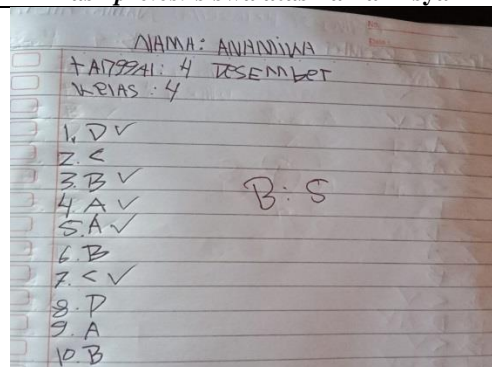 NAMA: ANANIWA
TANGGAL: 4 DESEMBER
KELAS : 4
1. D ✓
2. C
3. B ✓
4. A ✓
5. A ✓
B : 5
6. B
7. C ✓
8. D
9. A
10. B